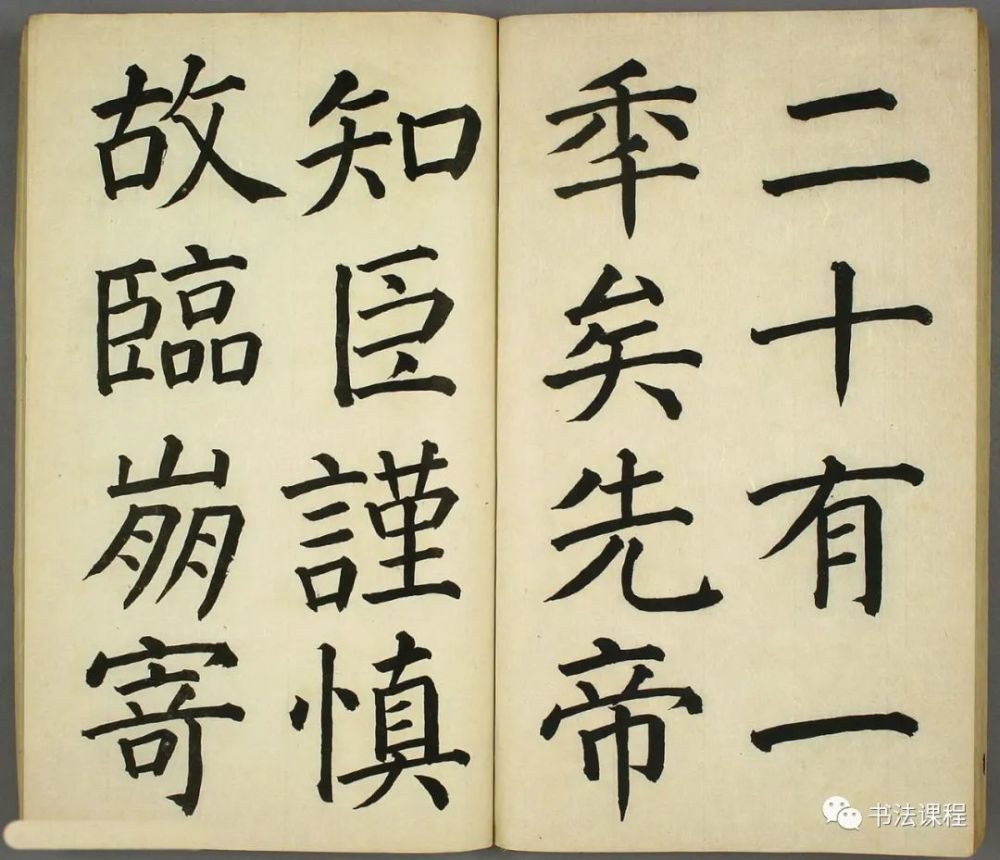 二十有一
秊矣先帝
知臣謹慎
故臨崩寄
书法课程